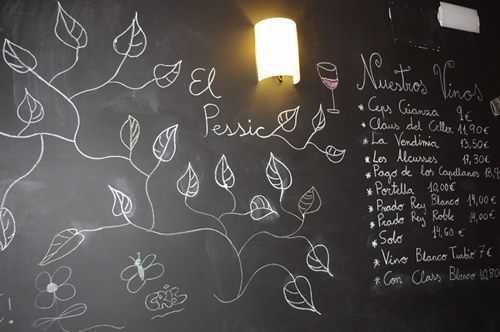 El
Pessic
Nuestros Vinos
* Ceps Crianza 9€
* Claus del Celler 11,90€
* La Vendimia 13,50€
* Les Alcusses 19,30€
* Pago de los Capellanes
* Portella 10,00€
* Prado Rey Blanco 14,00€
* Prado Rey Roble 14,00€
* Solo 14,60€
* Vino Blanco 7€
* Con Class Blanco